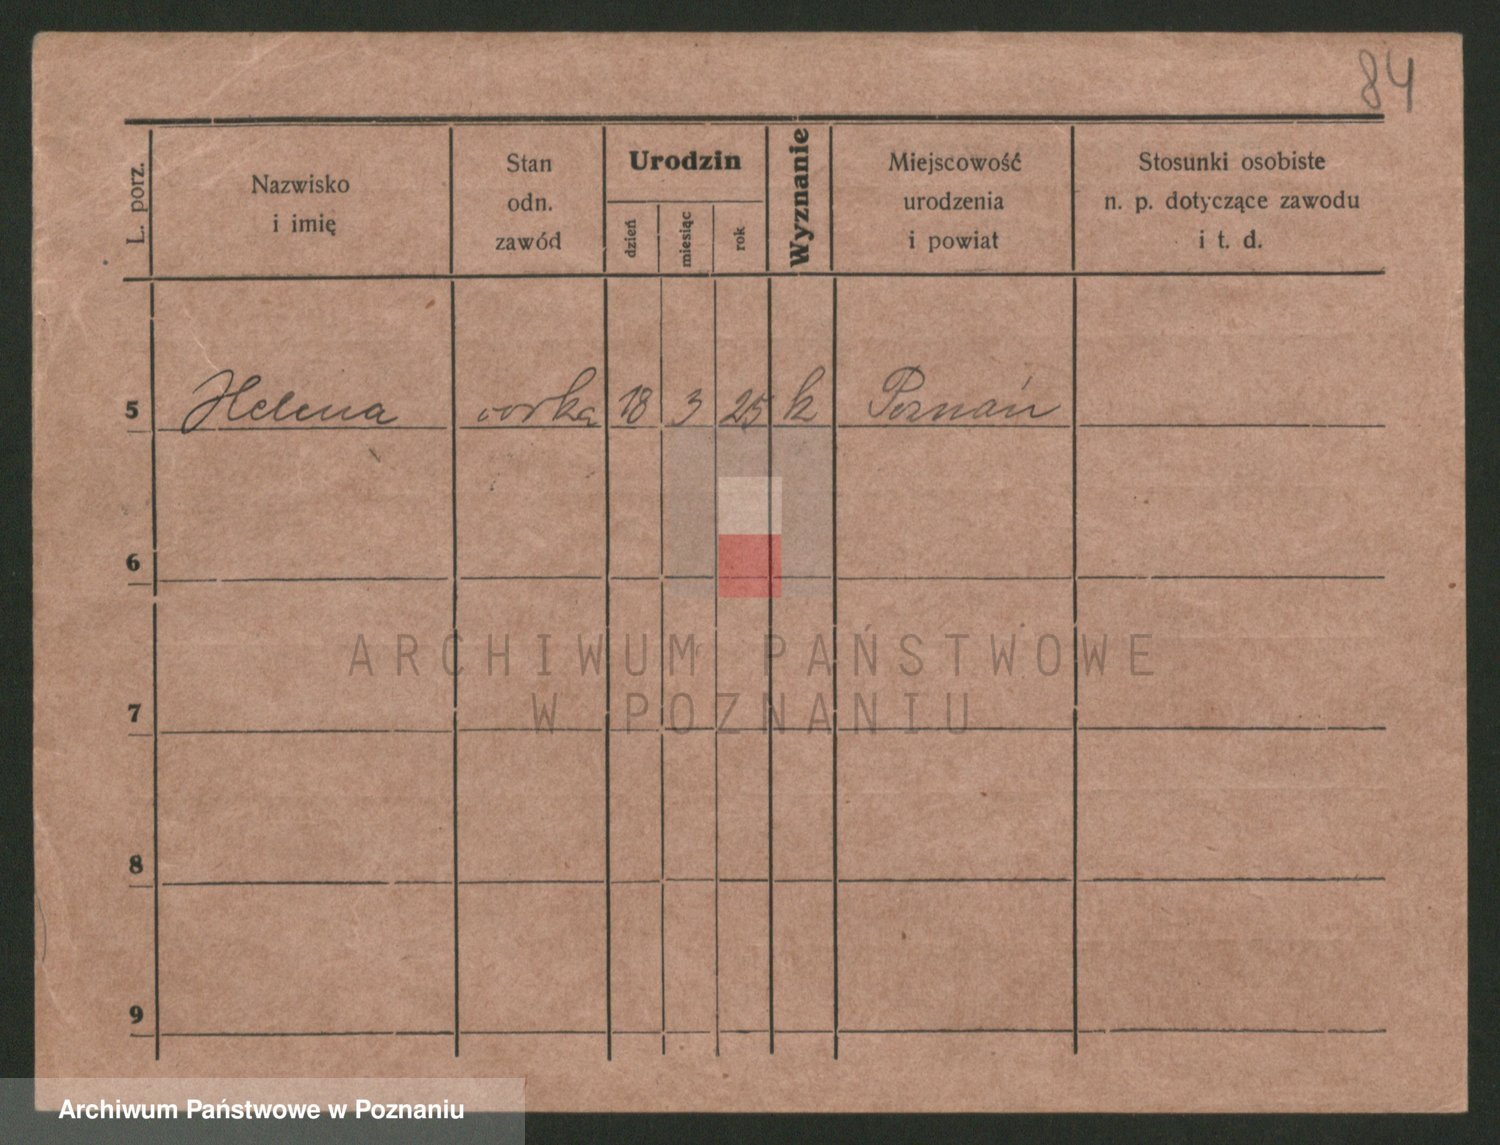 84
L. porz.
Nazwisko
i imię
Stan
odn.
zawód
Urodzin
dzień
miesiąc
rok
Wyznanie
Miejscowość
urodzenia
i powiat
Stosunki osobiste
n. p. dotyczące zawodu
i t. d.
5 Helena 18 3 25 k Poznań
6
ARCHIWUM PAŃSTWOWE
W POZNANIU
7
8
9
Archiwum Państwowe w Poznaniu